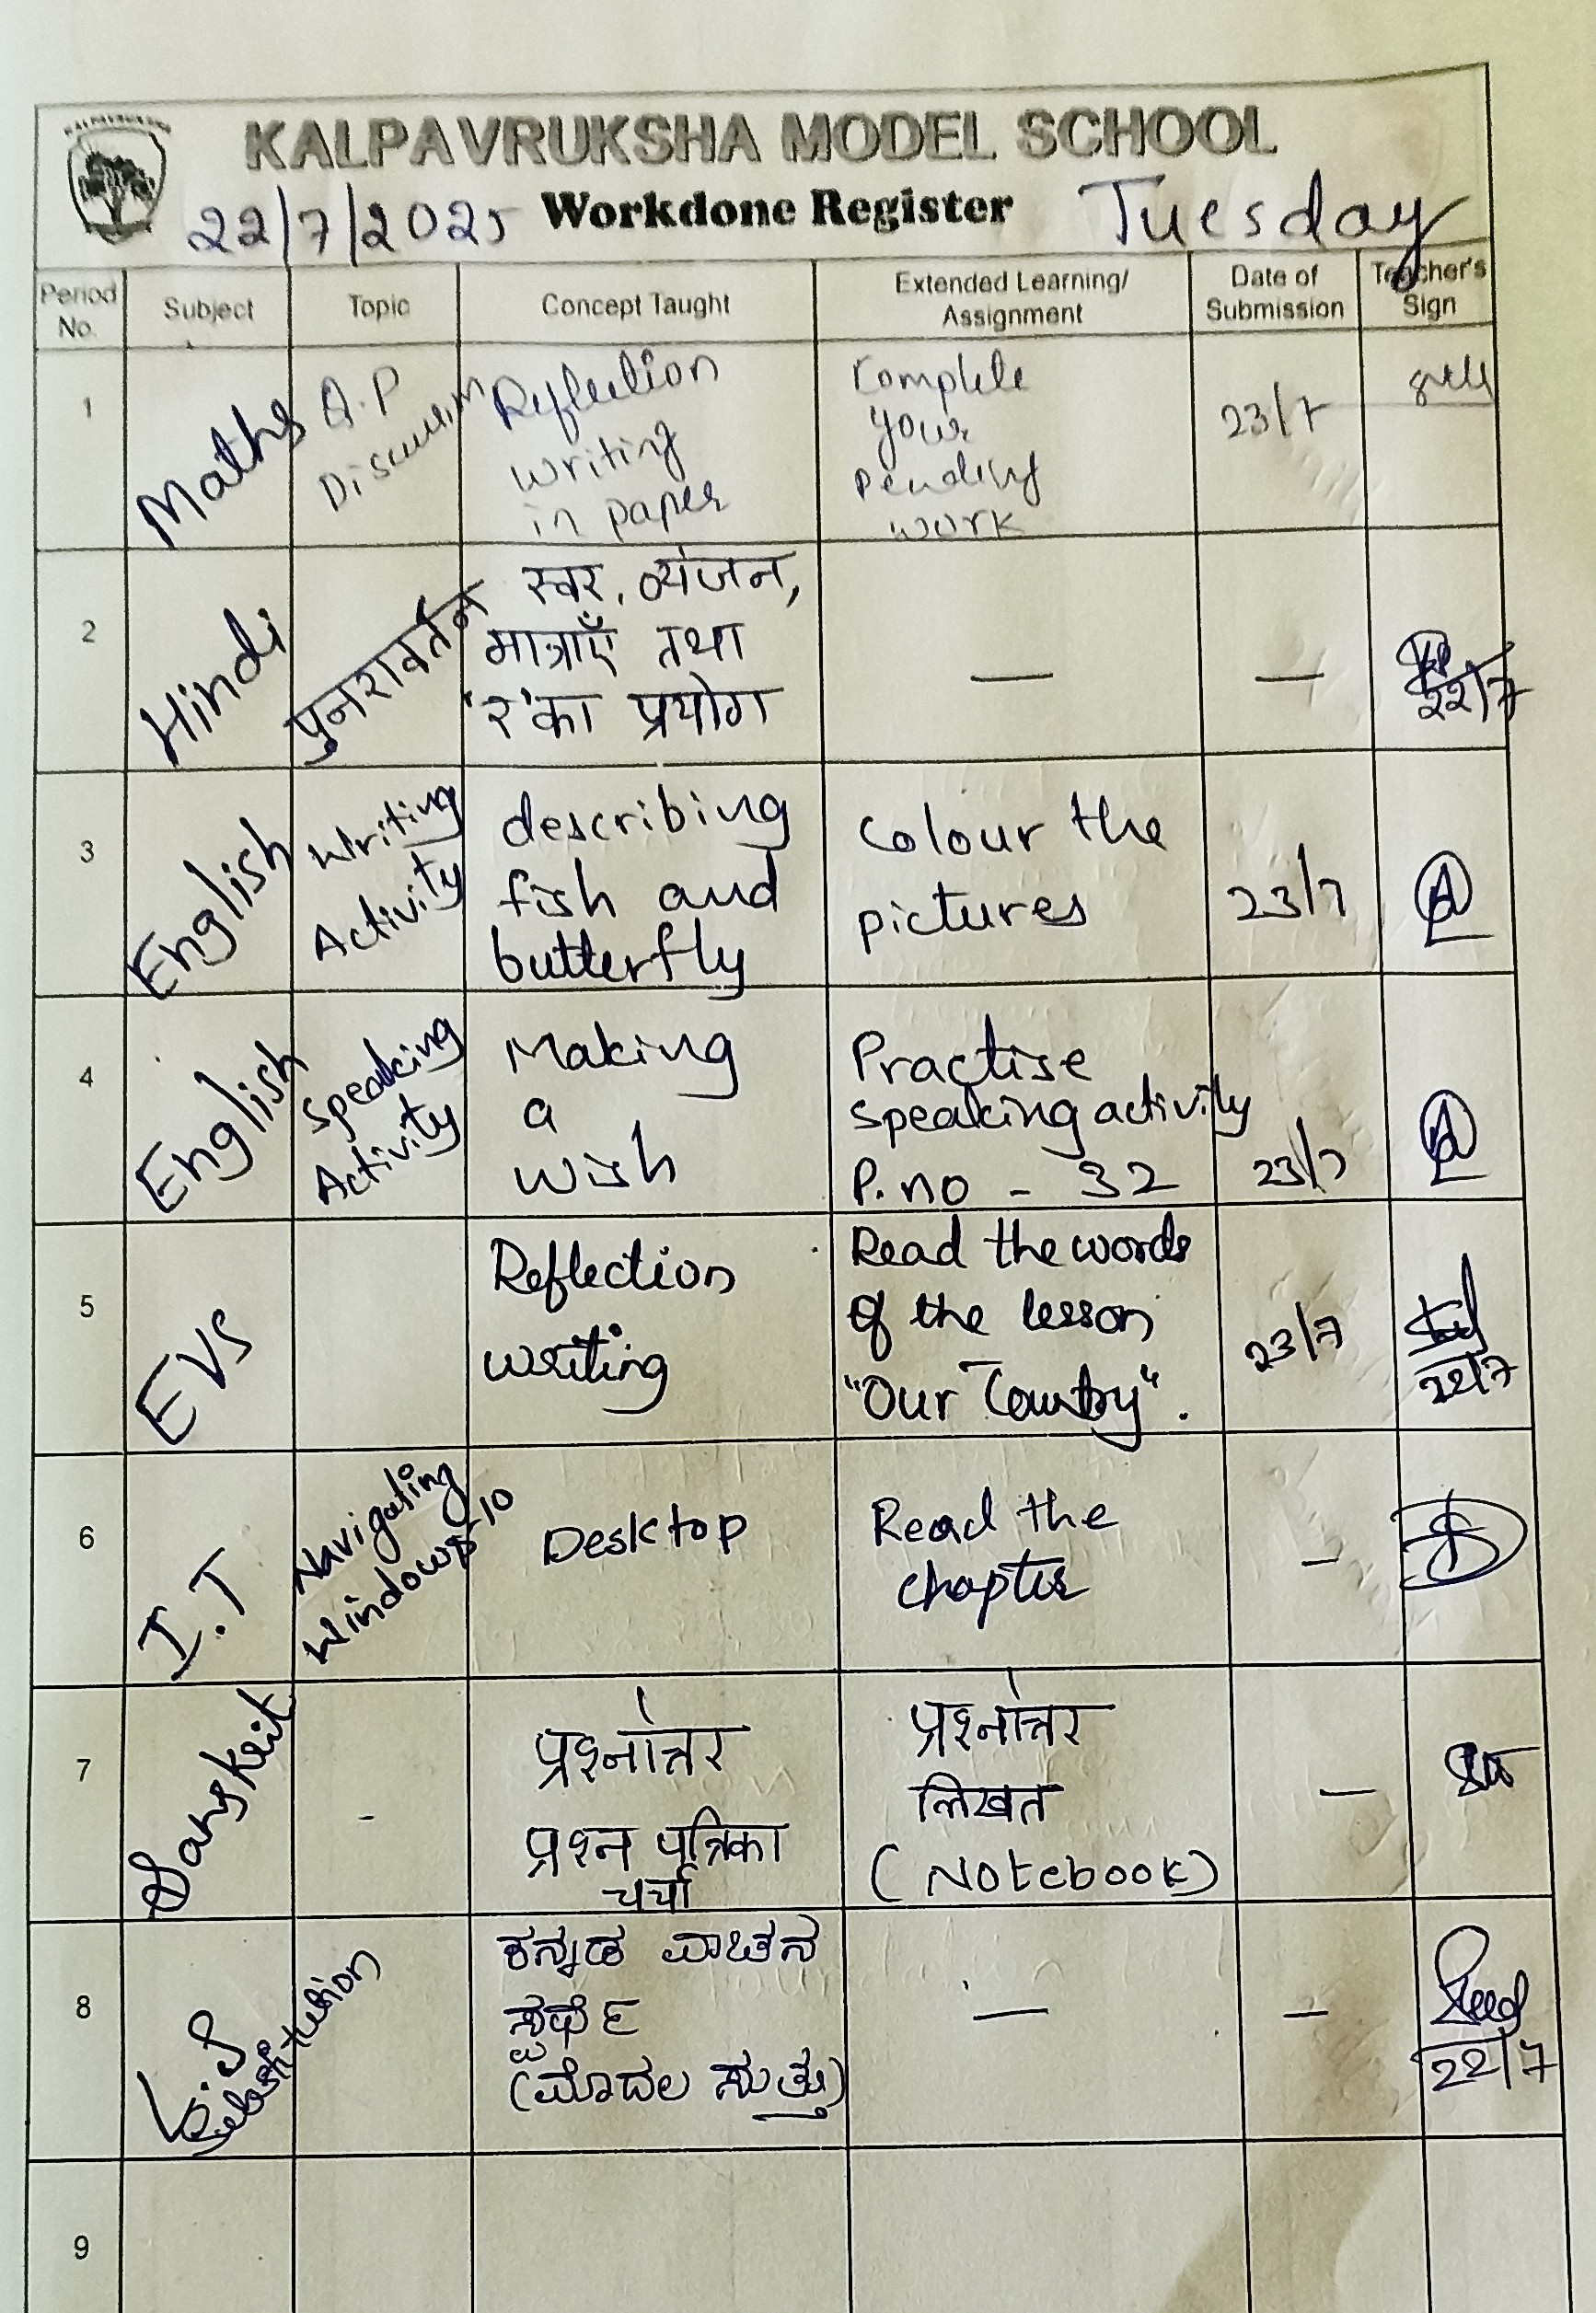 KALPAVRUKSHA
KALPAVRUKSHA MODEL SCHOOL
22/7/2025 Workdone Register Tuesday
Period No. Subject Topic Concept Taught Extended Learning/ Assignment Date of Submission Teacher's Sign
1 Maths A.P
Reflection
writing
in paper
Complete
your
pending
work
23/7
2 Hindi पुनरावर्तन
स्वर, व्यंजन,
मात्राएँ तथा
'र' का प्रयोग
—
—
22/7
3 English Writing
Activity
describing
fish and
butterfly
Colour the
pictures
23/7
4 English Speaking
Activity
Making
a
wish
Practise
speaking activity
P.no - 32
23/7
5 EVS
Reflection
writing
Read the words
of the lesson
"Our Country".
23/7
22/7
6 I.T Navigating
Windows-10
Desktop
Read the
chapter
–
7 Sanskrit -
प्रश्नोत्तर
प्रश्न पत्रिका
चर्चा
प्रश्नोत्तर
लिखत
(Notebook)
—
8 L.S
Substitution
ಕನ್ನಡ ವಾಚನ
ಸ್ಪರ್ಧೆ
(ಮೊದಲ ಸುತ್ತು)
—
—
22/7
9